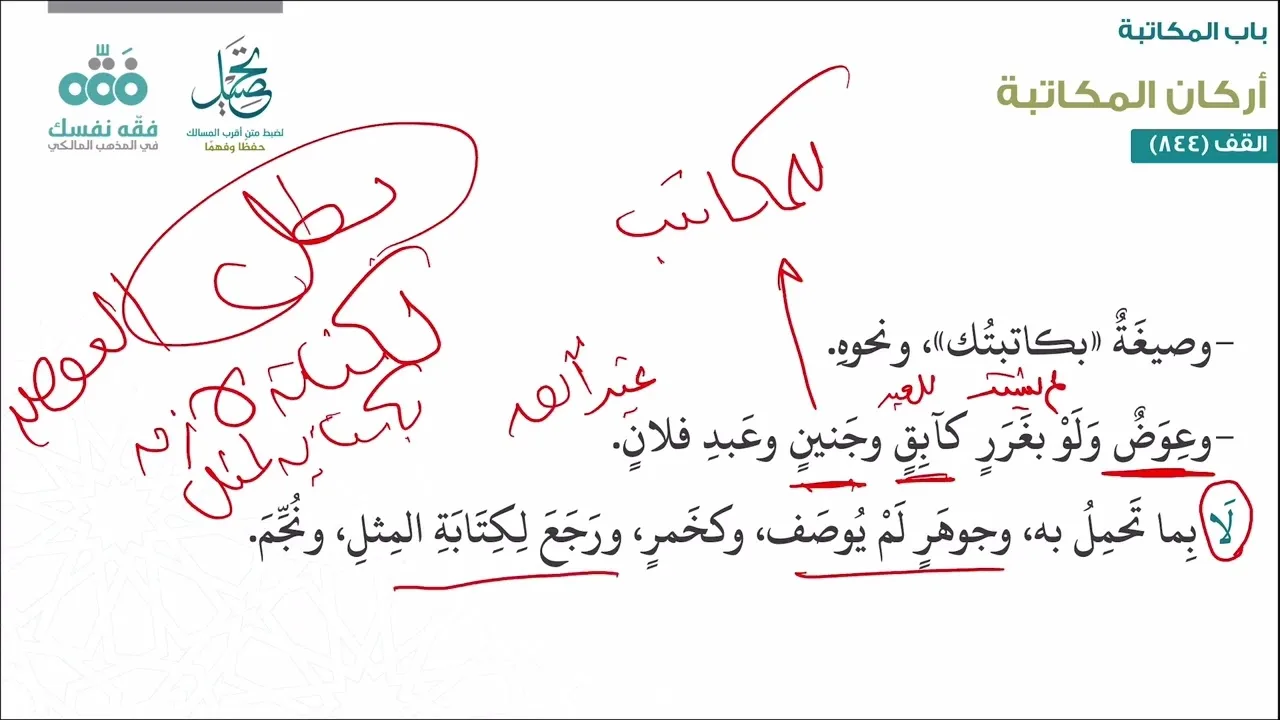 باب المكاتبة
أركان المكاتبة
القف (٨٤٤)
تحصيل
لضبط متن أقرب المسالك
حفظًا وفهمًا
فقّه
فقّه نفسك
في المذهب المالكي
للمكاتب
بطل
العوض
لكن
لازمة
بكتابة المثل
-وصيغَةٌ «بكاتبتُك»، ونحوهِ.
-وعِوَضٌ وَلَوْ بغَرَرٍ كآبِقٍ وجَنينٍ وعَبدِ فلانٍ.
لَا بِما تَحمِلُ به، وجوهَرٍ لَمْ يُوصَف، وكخَمرٍ، ورَجَعَ لِكِتَابَةِ المِثلِ، ونُجِّمَ.